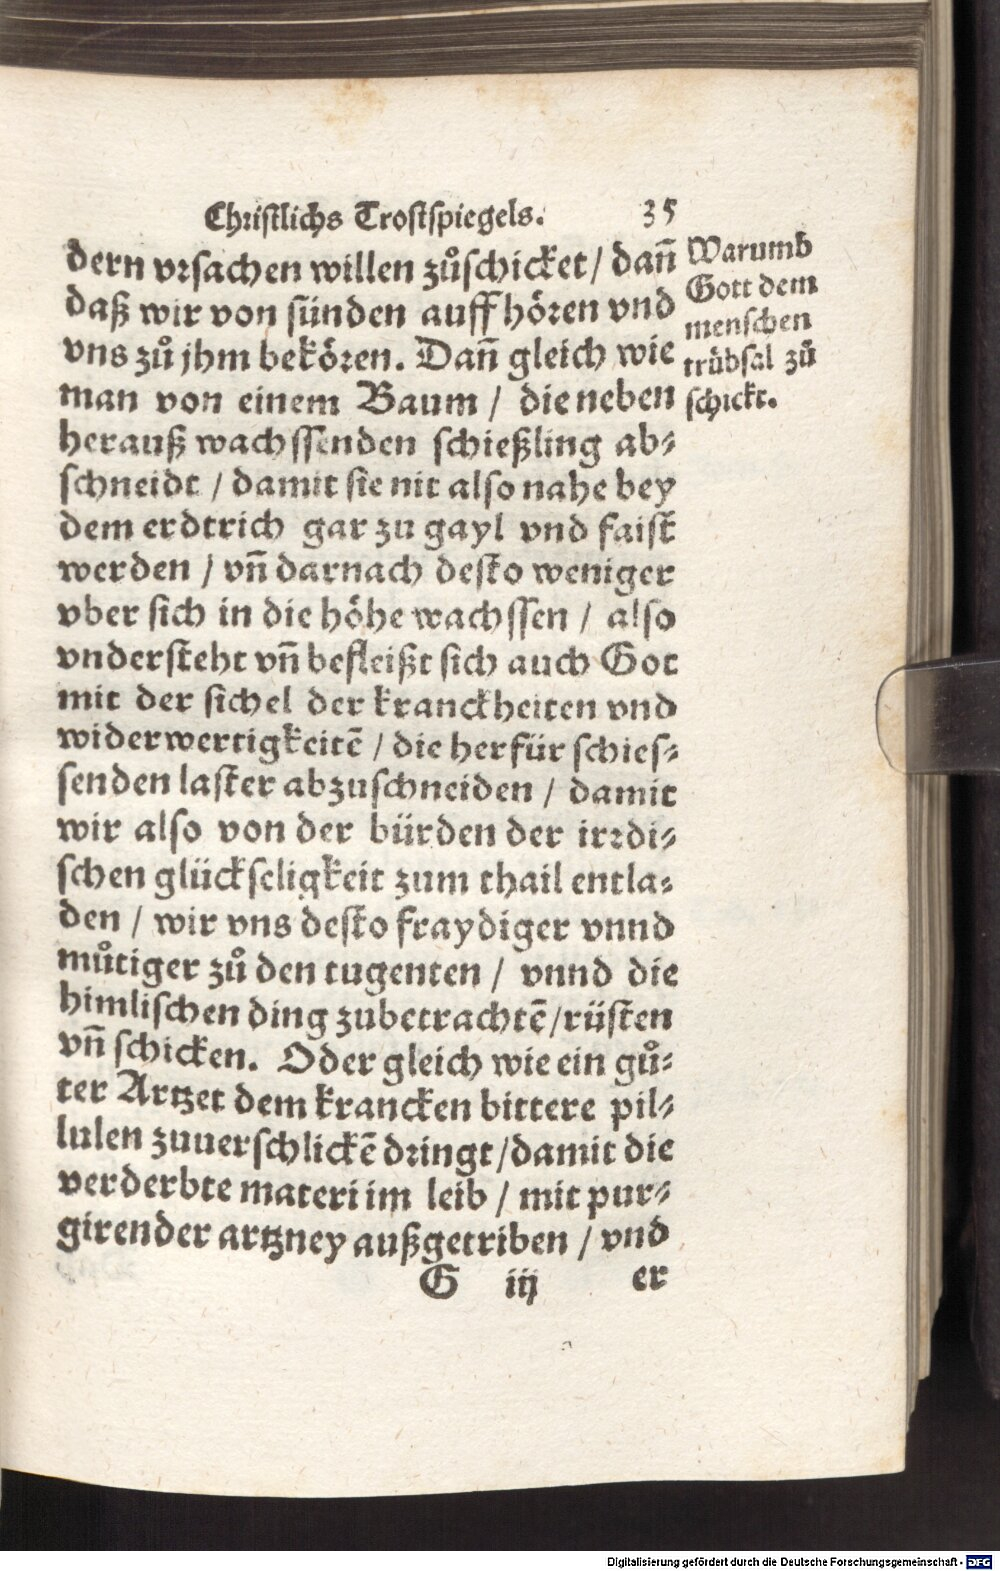 Christlichs Trostspiegels. 35
dern vrsachen willen zůschicket / dañ
daß wir von sünden auff hören vnd
vns zů jhm bekören. Dañ gleich wie
man von einem Baum / die neben
herauß wachssenden schießling ab⸗
schneidt / damit sie nit also nahe bey
dem erdtrich gar zu gayl vnd faist
werden / vñ darnach desto weniger
vber sich in die höhe wachssen / also
vndersteht vñ befleißt sich auch Got
mit der sichel der kranckheiten vnd
widerwertigkeitē / die herfür schies⸗
senden laster abzuschneiden / damit
wir also von der bürden der irrdi⸗
schen glückseligkeit zum thail entla⸗
den / wir vns desto fraydiger vnnd
můtiger zů den tugenten / vnnd die
himlischen ding zubetrachtē / rüsten
vñ schicken. Oder gleich wie ein gů⸗
ter Artzet dem krancken bittere pil⸗
lulen zuuerschlickē dringt / damit die
verderbte materi im leib / mit pur⸗
girender artzney außgetriben / vnd
G iij er
Warumb
Gott dem
menschen
trübsal zů
schickt.
Digitalisierung gefördert durch die Deutsche Forschungsgemeinschaft - DFG